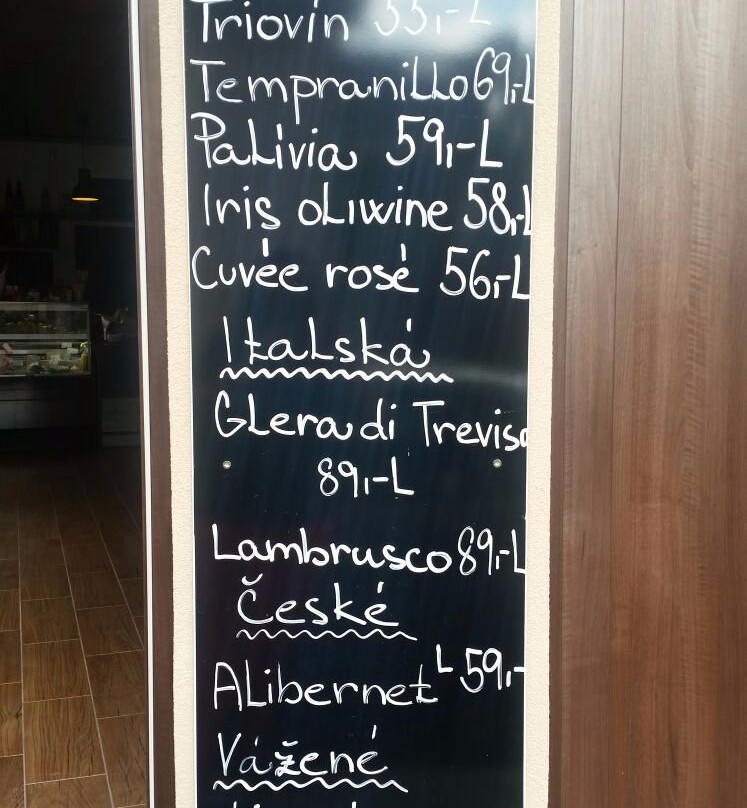 Triovín 55,-L
Tempranillo 69,-L
Palivia 59,-L
Iris oliwine 58,-L
Cuvée rosé 56,-L
Italská
Glera di Treviso
89,-L
Lambrusco 89,-L
České
Alibernet L 59,-
Vážené